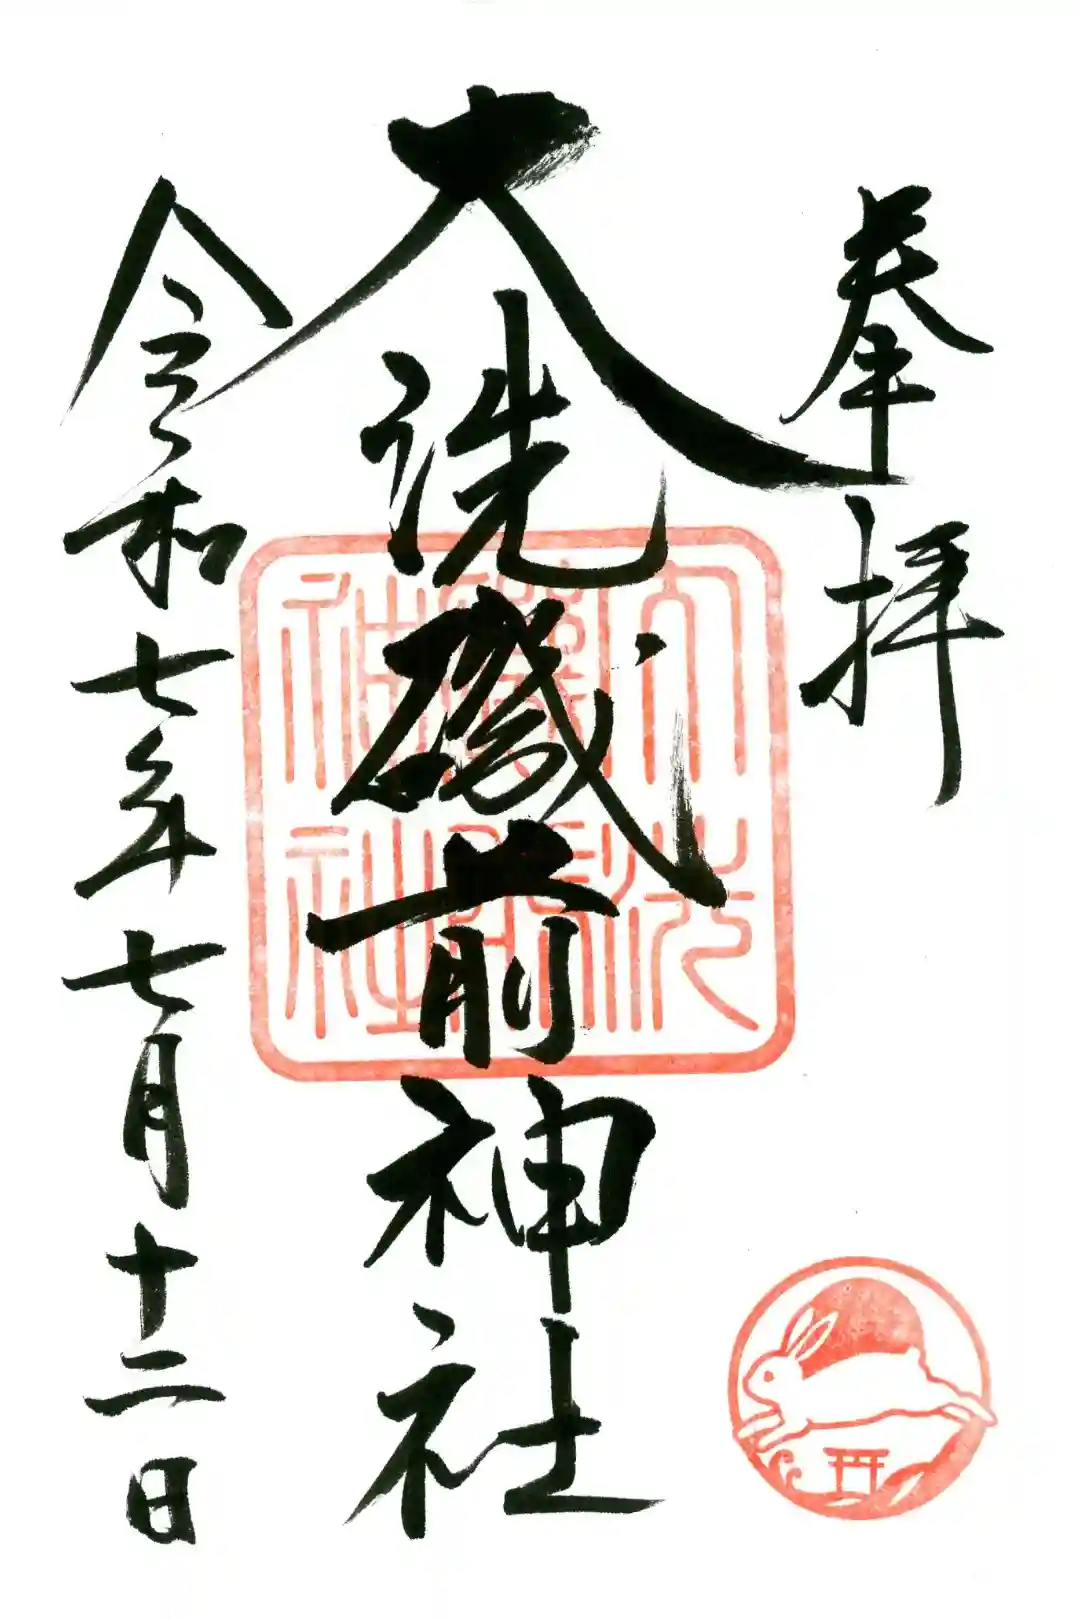 奉拝
大洗磯前神社
令和七年七月十二日
大洗
磯前
神社